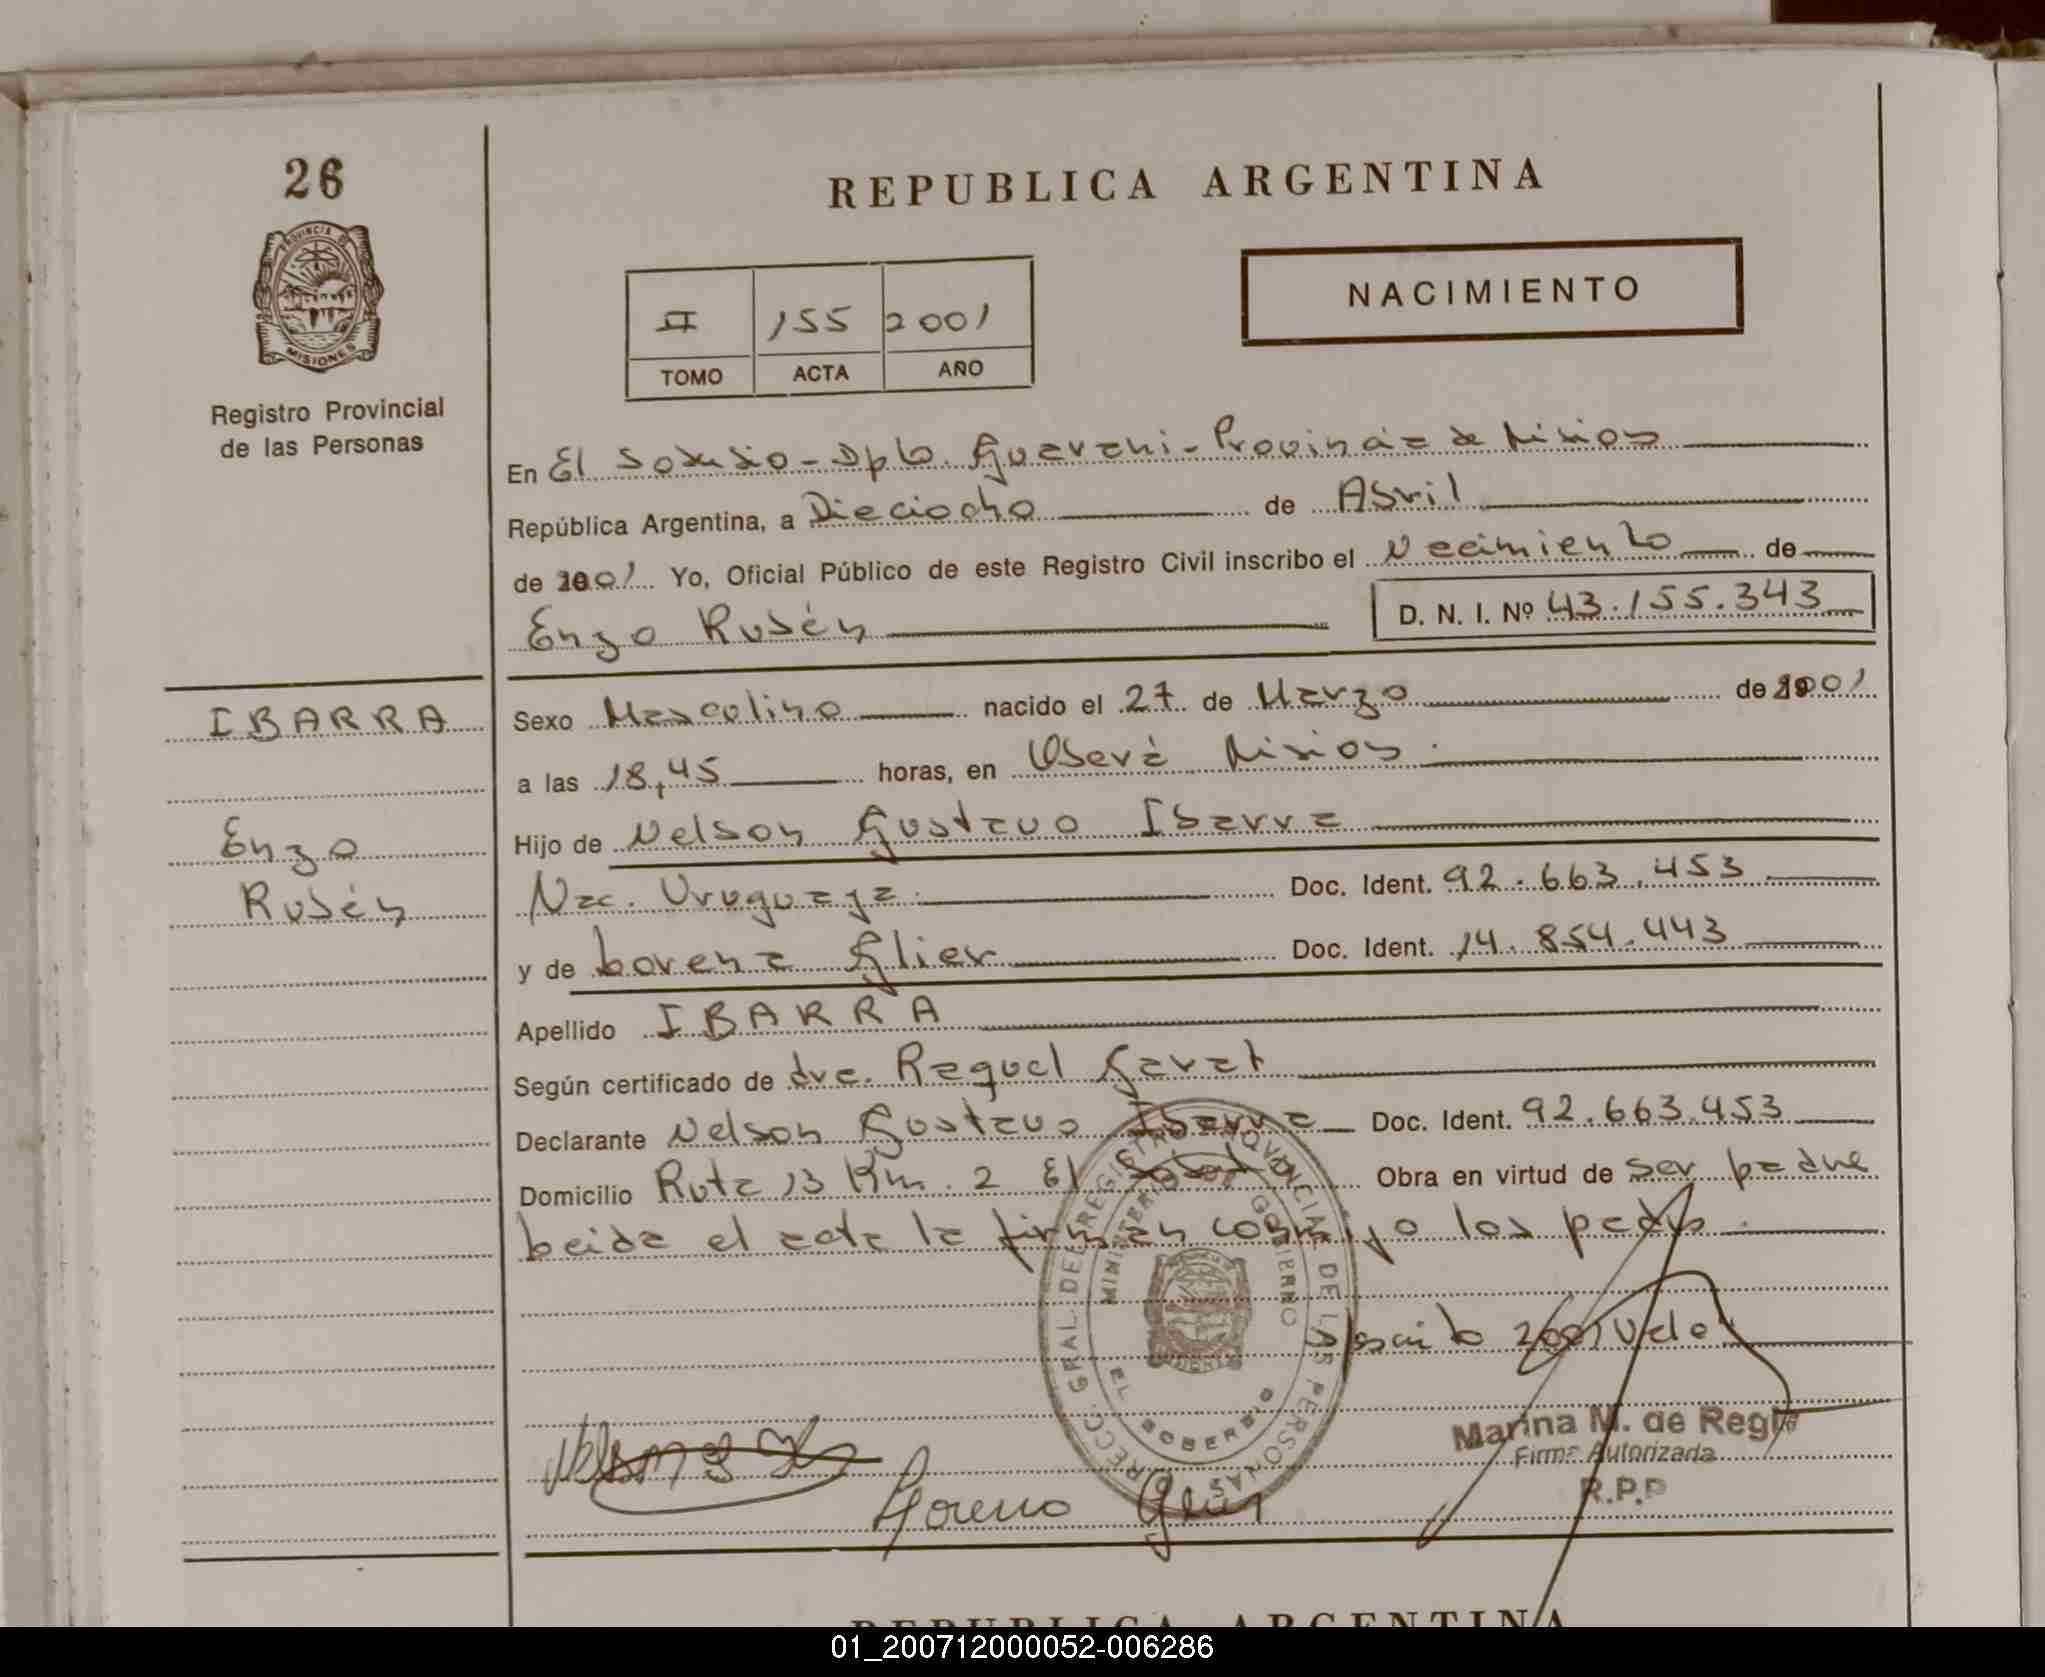 26
PROVINCIA DE
MISIONES
Registro Provincial
de las Personas
REPUBLICA ARGENTINA
NACIMIENTO
II 155 2001
TOMO ACTA AÑO
En El Soberbio - Dpto. Guarani - Provincia de Misiones
República Argentina, a Dieciocho de Abril
de 2001 Yo, Oficial Público de este Registro Civil inscribo el Nacimiento de
Enzo Rubén D. N. I. Nº 43.155.343
IBARRA
Enzo
Rubén
Sexo Masculino nacido el 27 de Marzo de 2001
a las 18,45 horas, en Oberá Misiones.
Hijo de Nelson Gustavo Ibarra
Nac. Uruguaya. Doc. Ident. 92.663.453
y de Lorena Glier Doc. Ident. 14.854.443
Apellido IBARRA
Según certificado de dra. Raquel Garat
Declarante Nelson Gustavo Ibarra Doc. Ident. 92.663.453
Domicilio Ruta 13 Km. 2 El Soberbio Obra en virtud de ser padre
Leida el acta la firman conmigo los padres.
2001 Vale.
DIRECC. GRAL. DEL REGISTRO PROVINCIAL DE LAS PERSONAS
MINISTERIO DE GOBIERNO
EL SOBERBIO
Marina M. de Regis
Firma Autorizada
R.P.P
Lorena Glier
REPUBLICA ARGENTINA
01_200712000052-006286